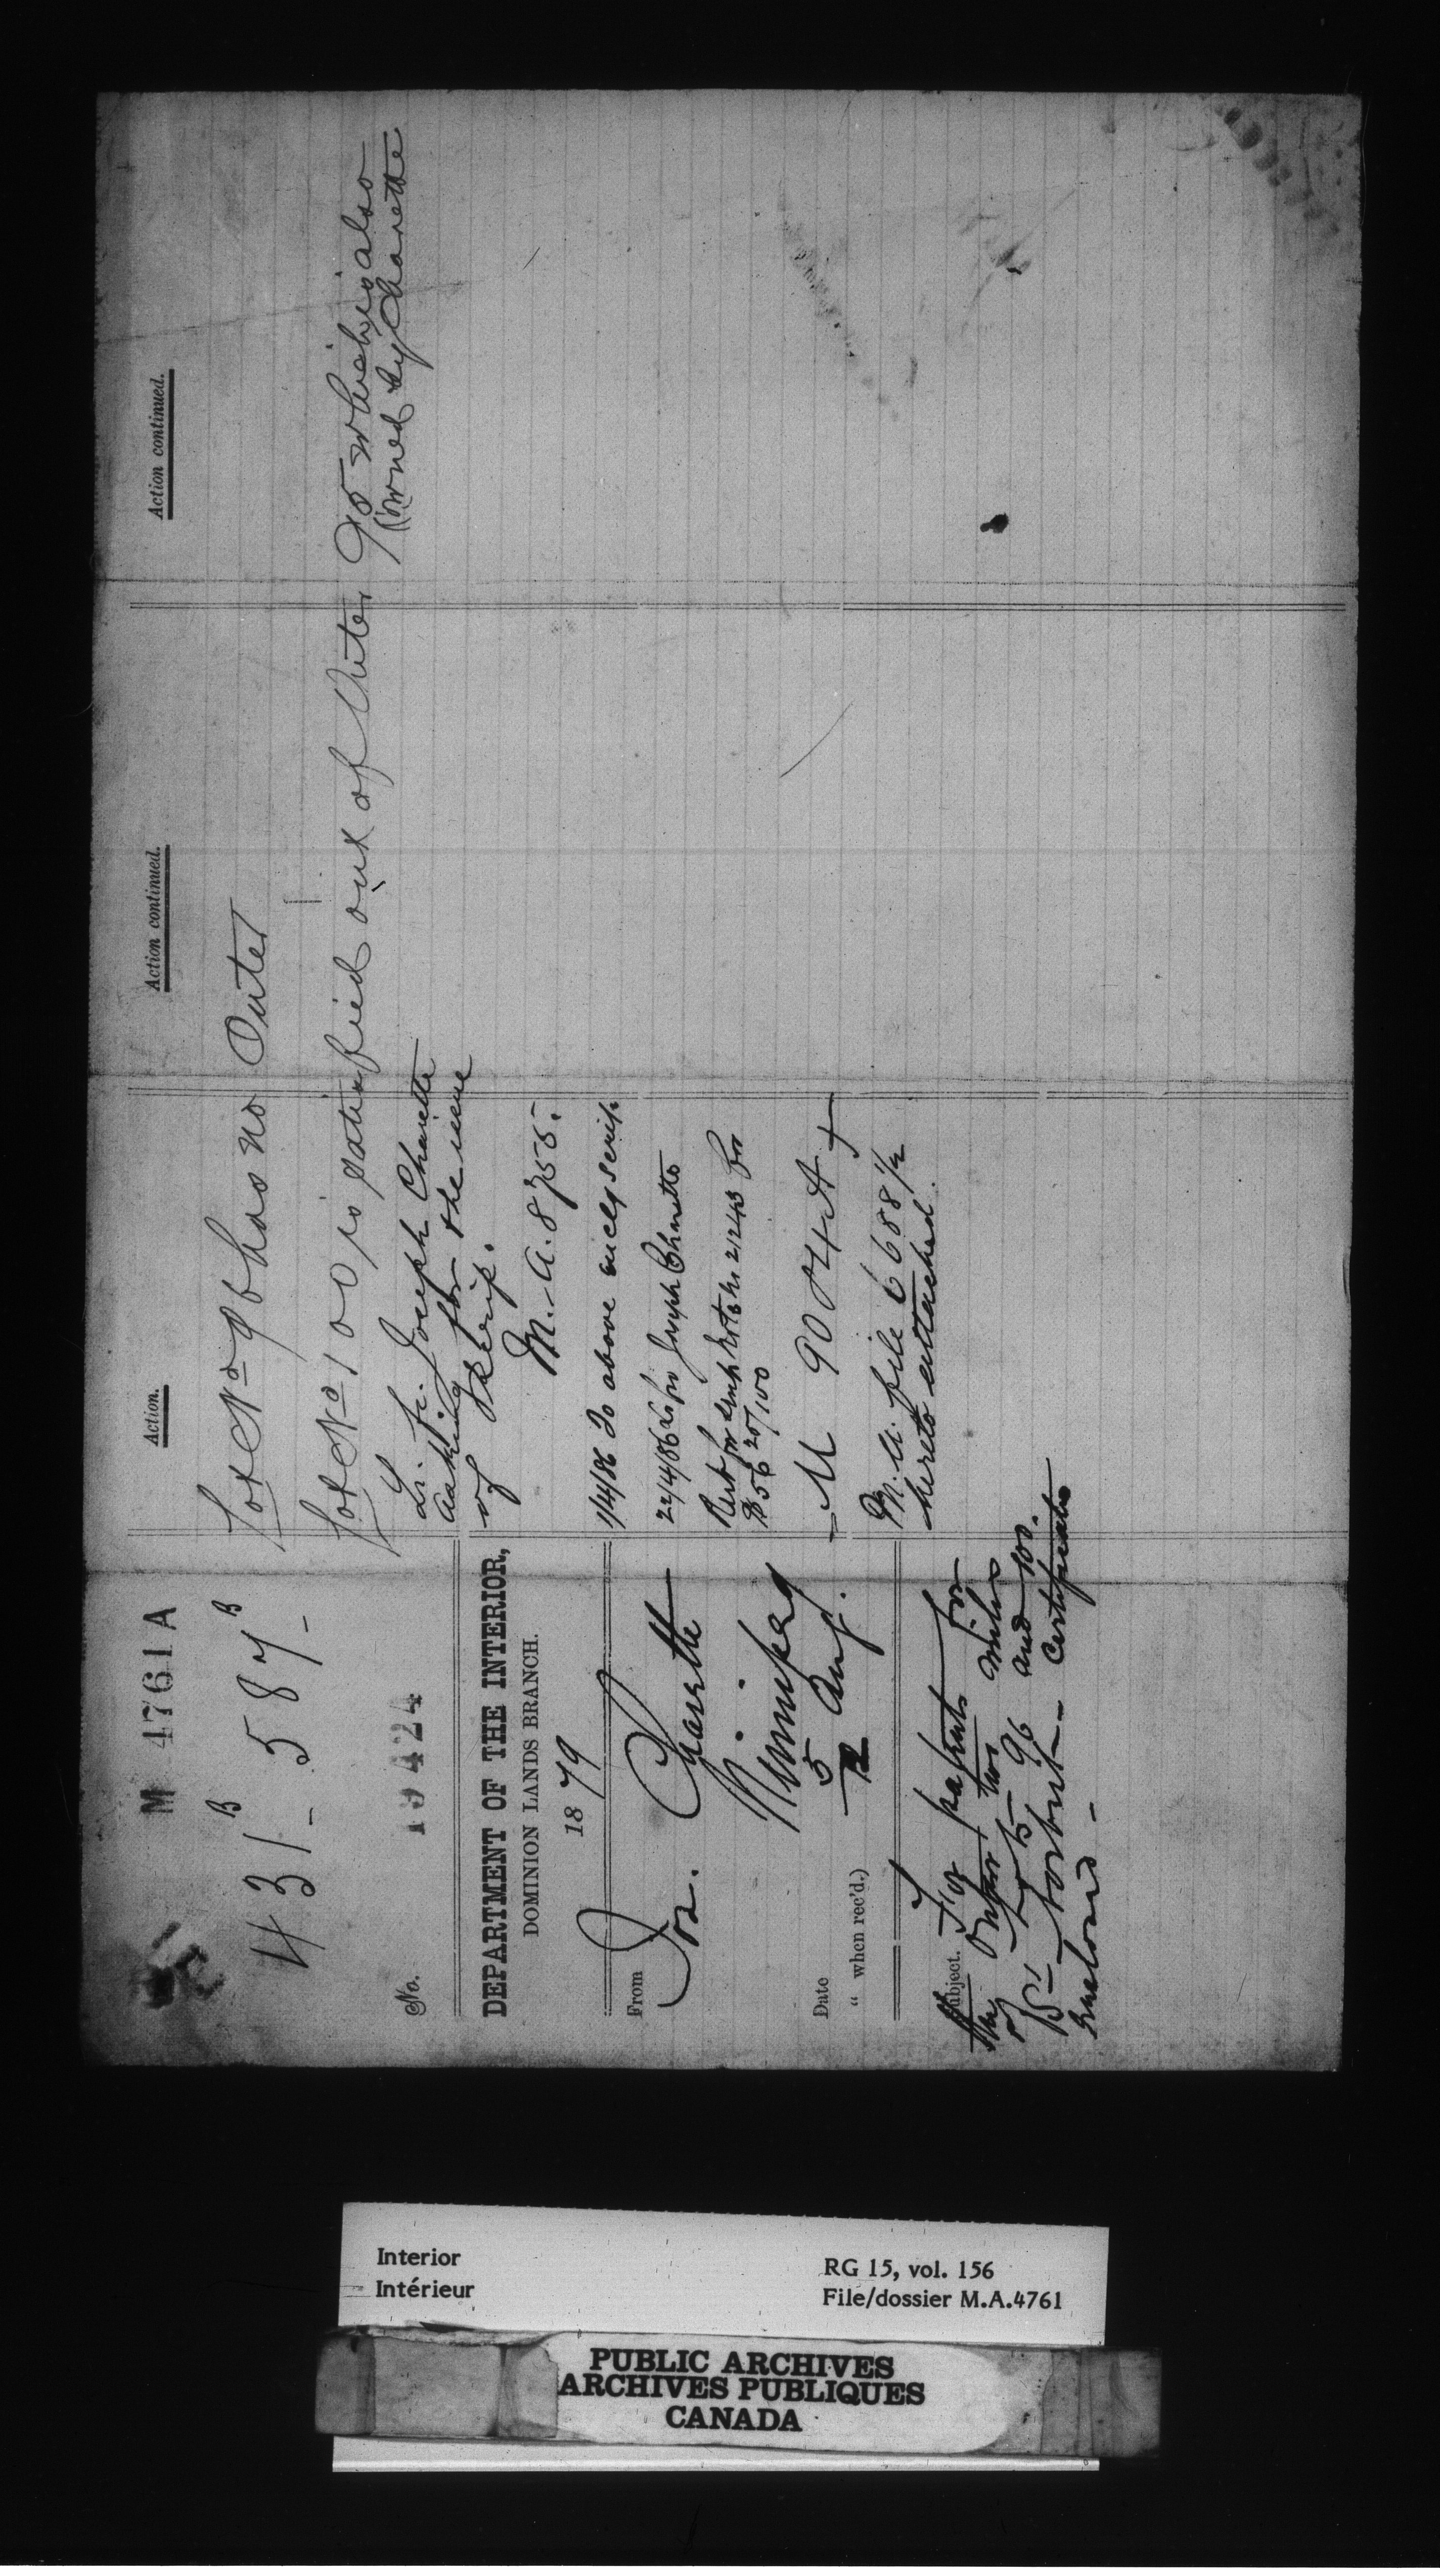 M 4761 A
431 B 587 B
No. 19424
DEPARTMENT OF THE INTERIOR,
DOMINION LANDS BRANCH.
1879
From Jos. Charette
Winnipeg
Date 5 Aug.
" when rec'd.) 12
Subject. For patents for
the Outer two miles
of Lots 96 and 100.
certificate
Enclosed
Action.
Lot No 96 has no Outer
Lot No 100 is satisfied out of Outer 95 which is also
(owned by Charette
Joseph Charette
asking for the issue
of Scrip.
M.A. 8755.
1/4/86 To above encl scrip
22/4/86 Joseph Charette
Rect for scrip 21243 for
$56 20/100
M 9004 A
M.A. file 6688 1/2
hereto attached.
Action continued.
Action continued.
Interior
Intérieur
RG 15, vol. 156
File/dossier M.A.4761
PUBLIC ARCHIVES
ARCHIVES PUBLIQUES
CANADA